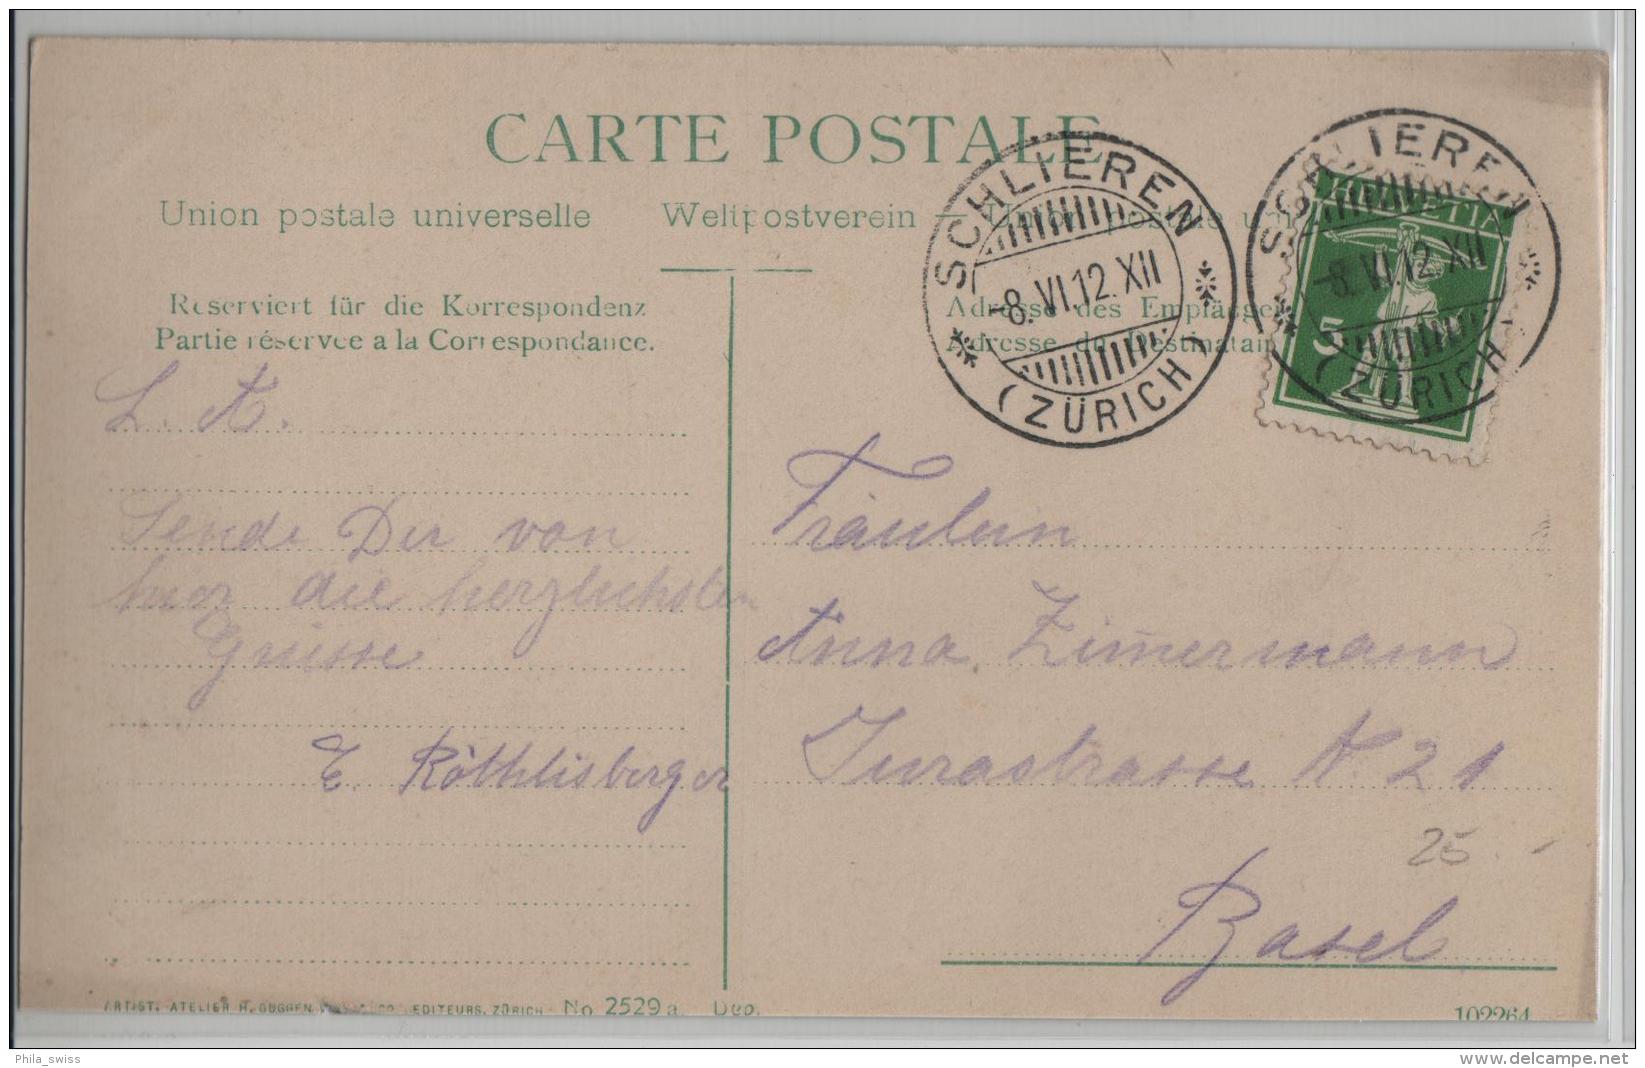 CARTE POSTALE
Union postale universelle Weltpostverein — Union postale uni
Reserviert für die Korrespondenz
Partie réservée a la Correspondance.
Adresse des Empfänger
Adresse du Destinatair
SCHLIEREN
-8.VI.12.XII
(ZÜRICH)
SCHLIEREN
-8.VI.12.XII
(ZÜRICH)
HELVETIA
5
L. A.
Sende Dir von
hier die herzlichsten
Grüsse
E. Röthlisberger
Fräulein
Anna Zim̄ermann
Jurastrasse N 21
25.-
Basel
ARTIST. ATELIER H. GUGGENHEIM & CO. EDITEURS, ZÜRICH No 2529 a. Dep.
102264
Phila_swiss
www.delcampe.net